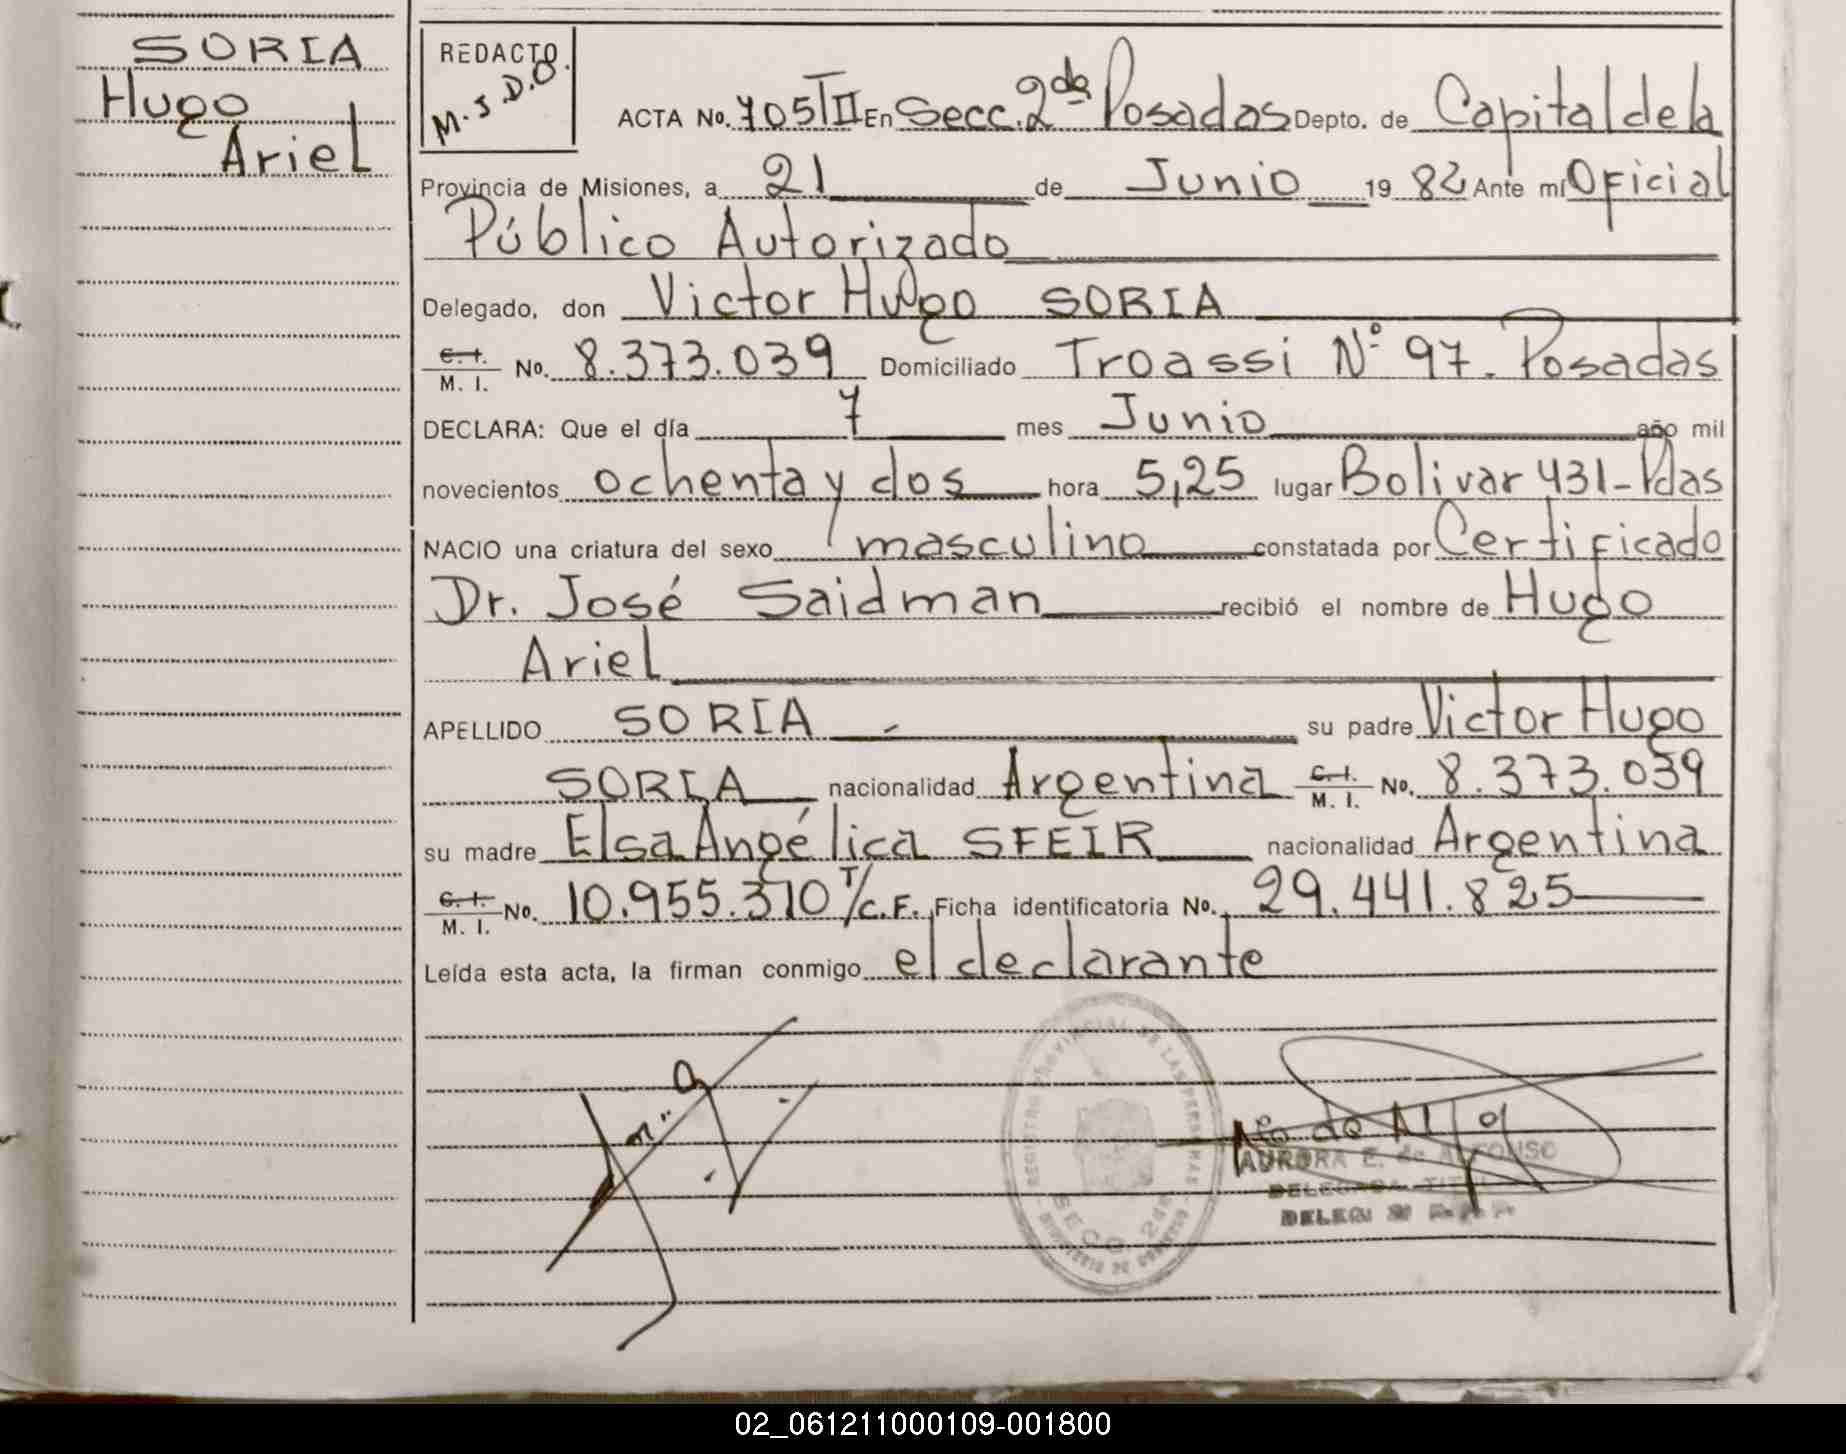 SORIA
Hugo
Ariel
REDACTO.
M.S.D.O
ACTA No. 705/II En Secc. 2da Posadas Depto. de Capital de la
Provincia de Misiones, a 21 de Junio 19 82 Ante mí Oficial
Público Autorizado
Delegado, don Victor Hugo SORIA
C. I. M. I. No. 8.373.039 Domiciliado Troassi Nº 97. Posadas
DECLARA: Que el día 7 mes Junio año mil
novecientos ochenta y dos hora 5,25 lugar Bolivar 431-Pdas
NACIO una criatura del sexo masculino constatada por Certificado
Dr. José Saidman recibió el nombre de Hugo
Ariel
APELLIDO SORIA su padre Victor Hugo
SORIA nacionalidad Argentina C. I. M. I. No. 8.373.039
su madre Elsa Angélica SFEIR nacionalidad Argentina
C. I. M. I. No. 10.955.370 T/C.F. Ficha identificatoria No. 29.441.825
Leída esta acta, la firman conmigo el declarante
REGISTRO PROVINCIAL DE LAS PERSONAS
SECC. 2da
AURORA E. de ALFONSO
DELEGADA TITULAR